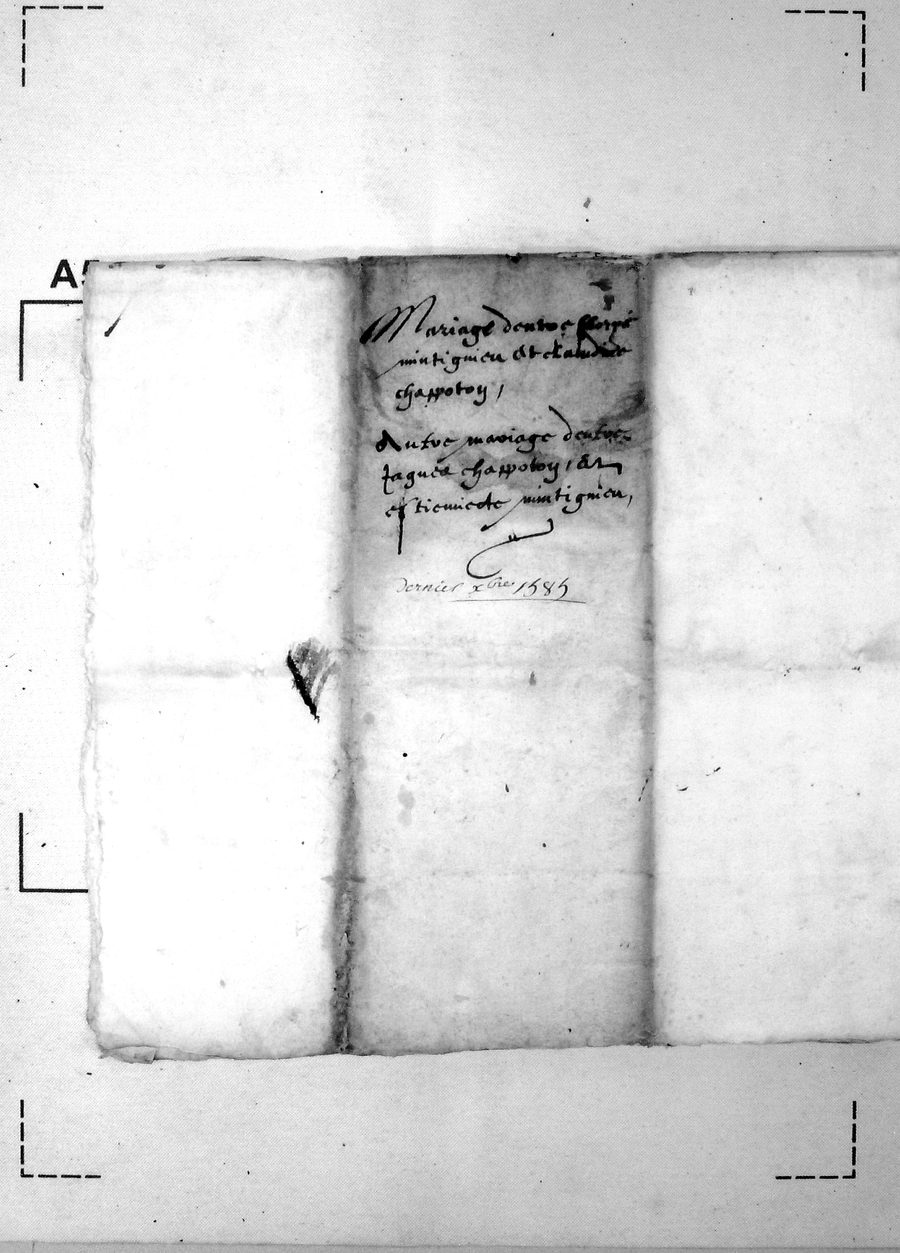 A5
Mariage dentre
mintignieu et claudine
chappotoy,
Autre mariage dentre
Jaques chappotoy, et
estiennette mintignieu,
dernier xbre 1585